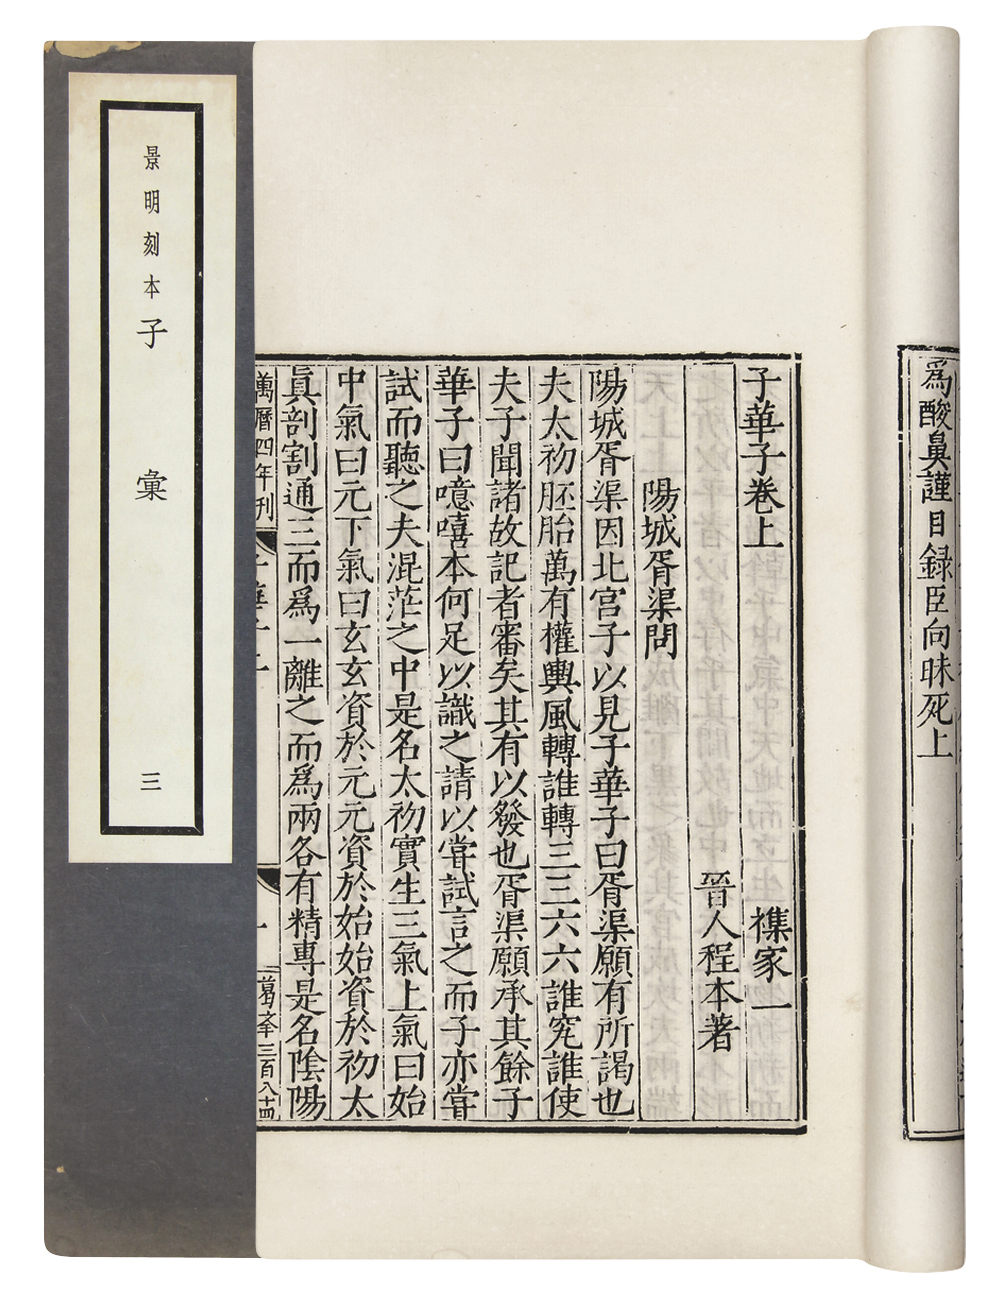 景明刻本子彙 三
為酸鼻謹目録臣向昧死上
子華子卷上 襍家一
晉人程本著
陽城胥渠問
陽城胥渠因北宮子以見子華子曰胥渠願有所謁也
夫太初胚胎萬有權輿風轉誰轉三三六六誰究誰使
夫子聞諸故記者審矣其有以發也胥渠願承其餘子
華子曰噫嘻本何足以識之請以甞試言之而子亦甞
試而聽之夫混茫之中是名太初實生三氣上氣曰始
中氣曰元下氣曰玄玄資於元元資於始始資於初太
眞剖割通三而爲一離之而爲兩各有精專是名陰陽
萬曆四年刊
三百八十四